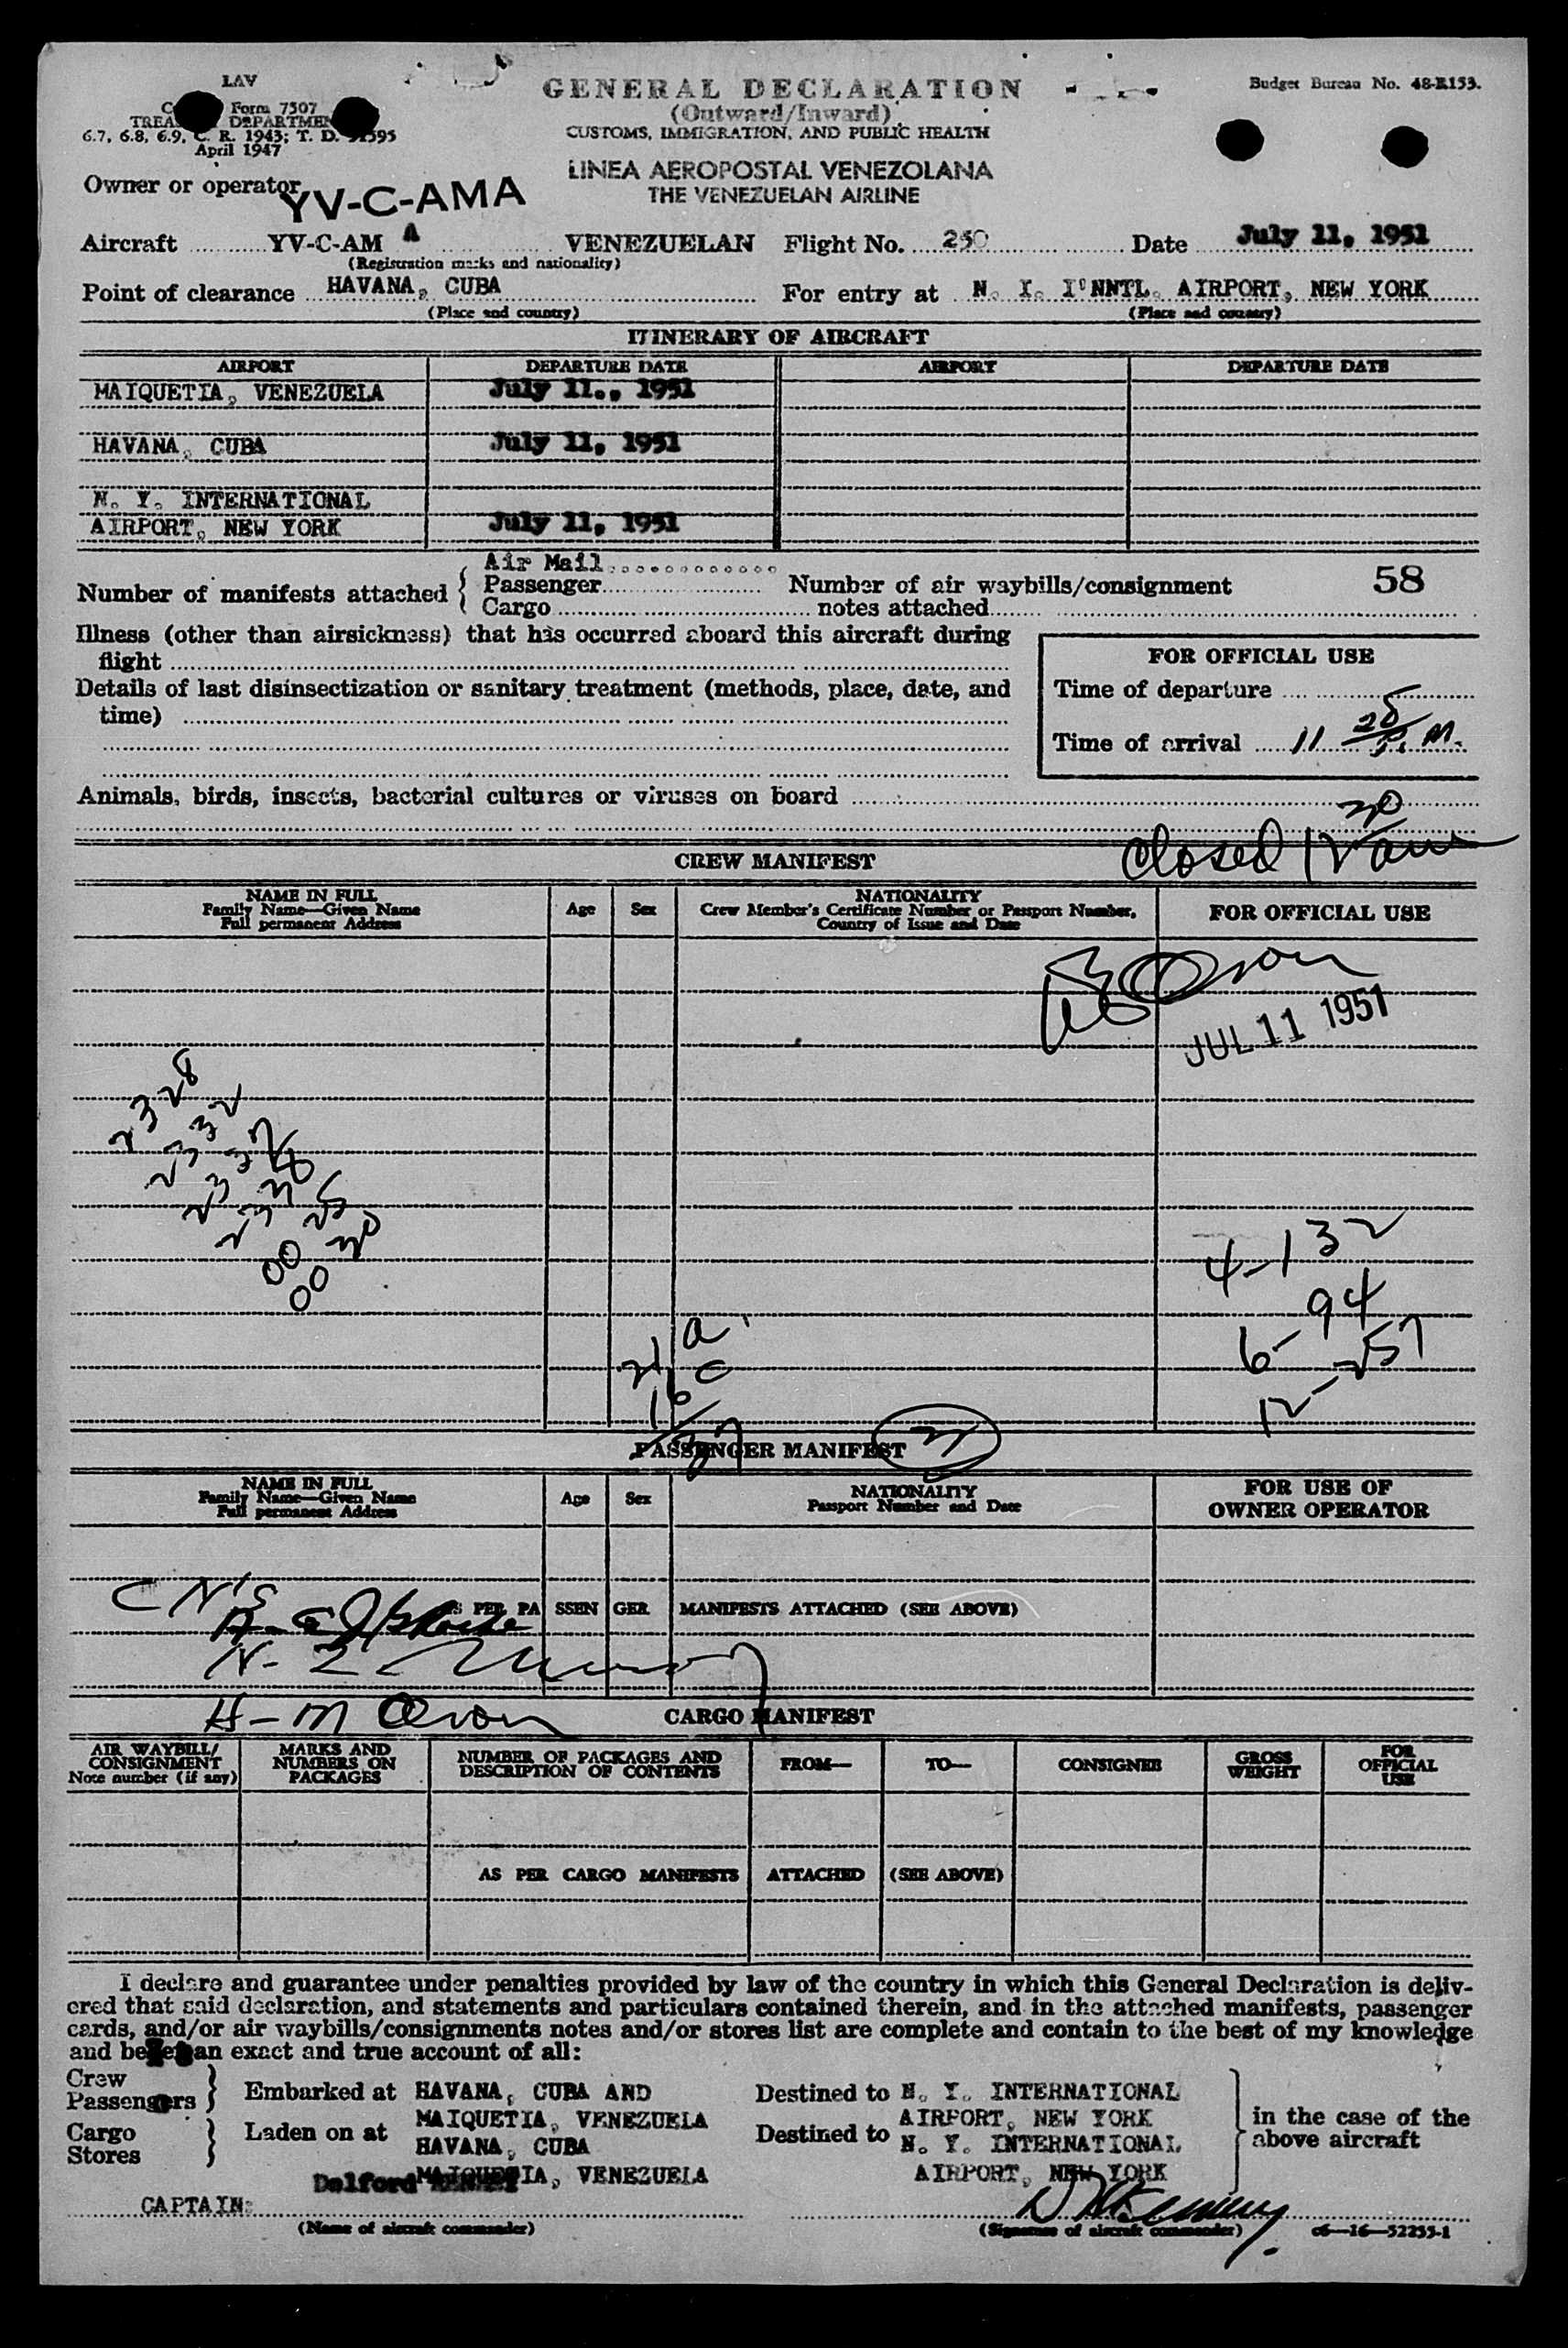 LAV
Form 7507
TREASURY DEPARTMENT
6.7, 6.8, 6.9, C. R. 1943; T. D. 51595
April 1947
GENERAL DECLARATION
(Outward/Inward)
CUSTOMS, IMMIGRATION, AND PUBLIC HEALTH
Budget Bureau No. 48-R153.
LINEA AEROPOSTAL VENEZOLANA
THE VENEZUELAN AIRLINE
Owner or operator YV-C-AMA
Aircraft YV-C-AM A VENEZUELAN Flight No. 250 Date July 11, 1951
(Registration marks and nationality)
Point of clearance HAVANA, CUBA For entry at N. Y. I'NNTL. AIRPORT, NEW YORK
(Place and country) (Place and country)
ITINERARY OF AIRCRAFT
AIRPORT DEPARTURE DATE AIRPORT DEPARTURE DATE
MAIQUETIA, VENEZUELA July 11., 1951
HAVANA, CUBA July 11, 1951
N. Y. INTERNATIONAL
AIRPORT, NEW YORK July 11, 1951
Air Mail
Number of manifests attached { Passenger Number of air waybills/consignment 58
Cargo notes attached
Illness (other than airsickness) that has occurred aboard this aircraft during
flight
FOR OFFICIAL USE
Details of last disinsectization or sanitary treatment (methods, place, date, and
time)
Time of departure
Time of arrival 11 28 P. M.
Animals, birds, insects, bacterial cultures or viruses on board
Closed 12 30 am
CREW MANIFEST
NAME IN FULL
Family Name—Given Name
Full permanent Address
Age
Sex
NATIONALITY
Crew Member's Certificate Number or Passport Number,
Country of Issue and Date
FOR OFFICIAL USE
JUL 11 1951
2328
2332
2337
00 25
00 30
4-132
94
6-
257
12-
21 a
16 c
37
PASSENGER MANIFEST
NAME IN FULL
Family Name—Given Name
Full permanent Address
Age
Sex
NATIONALITY
Passport Number and Date
FOR USE OF
OWNER OPERATOR
CN'S
AS PER PA SSEN GER MANIFESTS ATTACHED (SEE ABOVE)
CARGO MANIFEST
AIR WAYBILL/
CONSIGNMENT
Note number (if any)
MARKS AND
NUMBERS ON
PACKAGES
NUMBER OF PACKAGES AND
DESCRIPTION OF CONTENTS
FROM—
TO—
CONSIGNEE
GROSS
WEIGHT
FOR
OFFICIAL
USE
AS PER CARGO MANIFESTS ATTACHED (SEE ABOVE)
I declare and guarantee under penalties provided by law of the country in which this General Declaration is deliv-
ered that said declaration, and statements and particulars contained therein, and in the attached manifests, passenger
cards, and/or air waybills/consignments notes and/or stores list are complete and contain to the best of my knowledge
and belief an exact and true account of all:
Crew
Passengers } Embarked at HAVANA, CUBA AND
MAIQUETIA, VENEZUELA
Destined to N. Y. INTERNATIONAL
AIRPORT, NEW YORK
Cargo
Stores } Laden on at HAVANA, CUBA
MAIQUETIA, VENEZUELA
Destined to N. Y. INTERNATIONAL
AIRPORT, NEW YORK
} in the case of the
above aircraft
CAPTAIN: Delford
(Name of aircraft commander) (Signature of aircraft commander) c6—16—52255-1